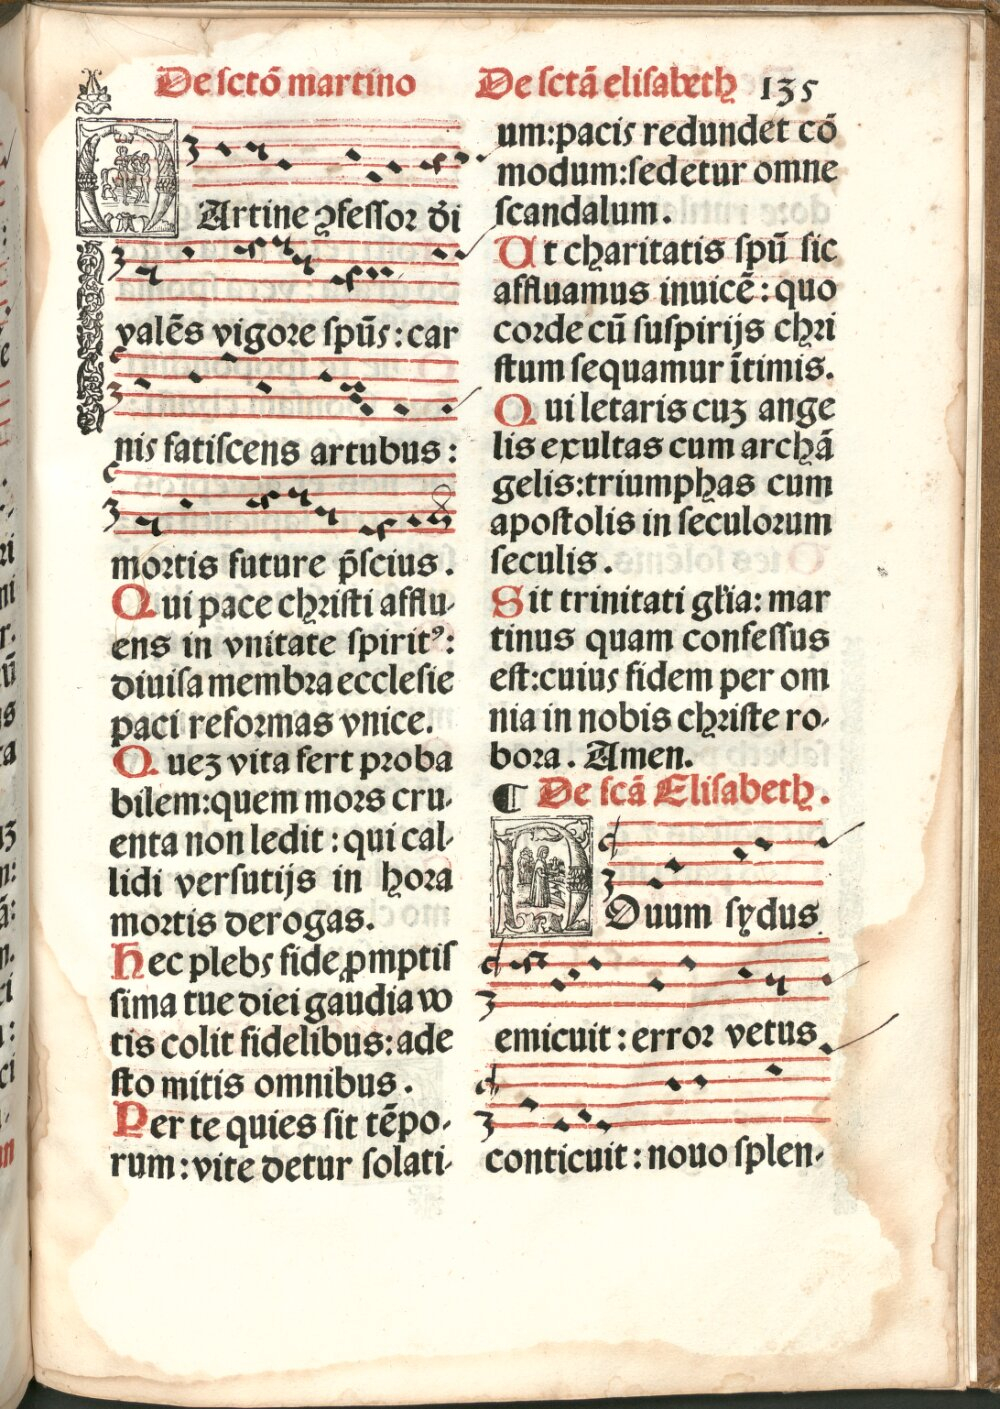 De sctõ martino De sctã elisabeth 135
MArtine ꝯfessor di
valẽs vigore spũs: car
nis fatiscens artubus:
mortis future p̃scius.
Qui pace christi afflu-
ens in vnitate spiritꝰ:
diuisa membra ecclesie
paci reformas vnice.
Quez vita fert proba
bilem: quem mors cru-
enta non ledit: qui cal-
lidi versutijs in hora
mortis derogas.
Hec plebs fide ꝓmptis
sima tue diei gaudia vo
tis colit fidelibus: ade
sto mitis omnibus.
Per te quies sit tẽpo-
rum: vite detur solati-
um: pacis redundet cõ
modum: sed etur omne
scandalum.
Ut charitatis spũ sic
affluamus inuicẽ: quo
corde cũ suspirijs chri
stum sequamur ĩtimis.
Qui letaris cuz ange
lis exultas cum archã
gelis: triumphas cum
apostolis in seculorum
seculis.
Sit trinitati gl̃ia: mar
tinus quam confessus
est: cuius fidem per om
nia in nobis christe ro-
bora. Amen.
¶ De scã Elisabeth.
NOuum sydus
emicuit: error vetus
conticuit: nouo splen-